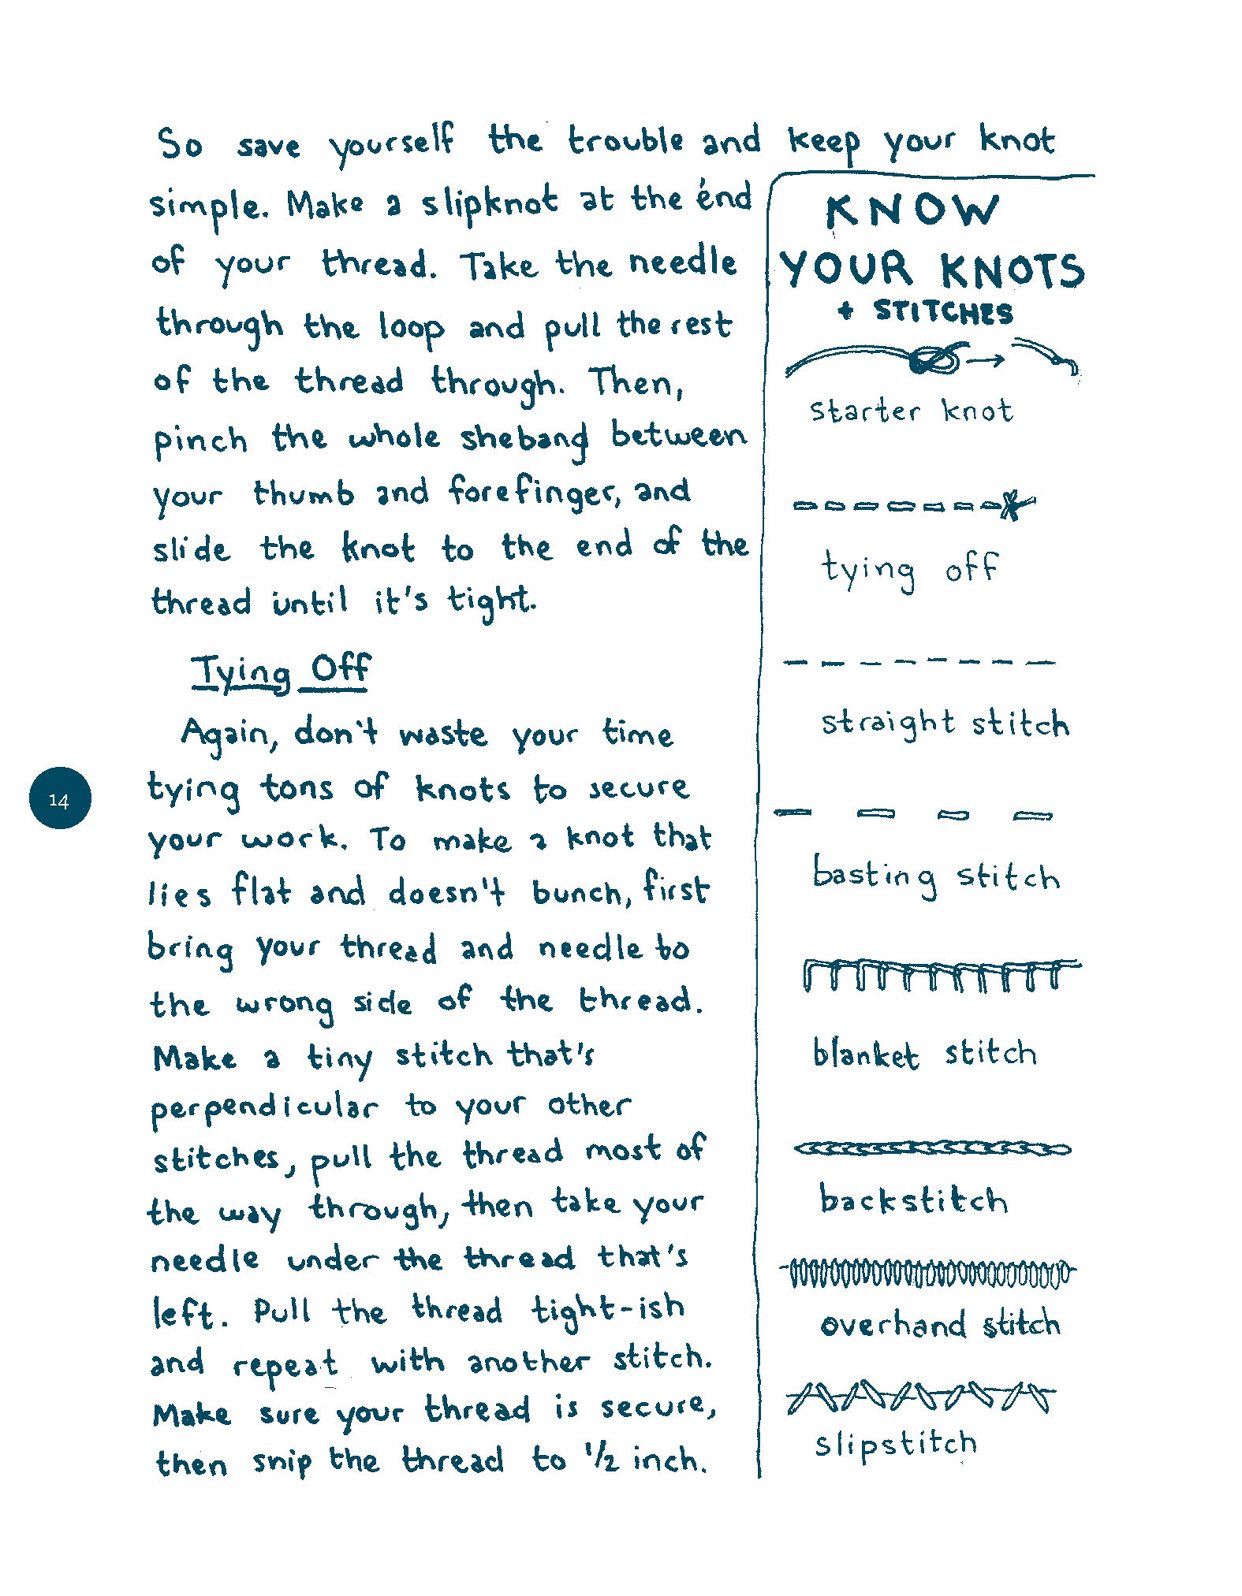 So save yourself the trouble and keep your knot
simple. Make a slipknot at the end
of your thread. Take the needle
through the loop and pull the rest
of the thread through. Then,
pinch the whole shebang between
your thumb and forefinger, and
slide the knot to the end of the
thread until it's tight.
Tying Off
Again, don't waste your time
tying tons of knots to secure
your work. To make a knot that
lies flat and doesn't bunch, first
bring your thread and needle to
the wrong side of the thread.
Make a tiny stitch that's
perpendicular to your other
stitches, pull the thread most of
the way through, then take your
needle under the thread that's
left. Pull the thread tight-ish
and repeat with another stitch.
Make sure your thread is secure,
then snip the thread to 1/2 inch.
KNOW
YOUR KNOTS
+ STITCHES
starter knot
tying off
straight stitch
basting stitch
blanket stitch
backstitch
overhand stitch
slipstitch
14